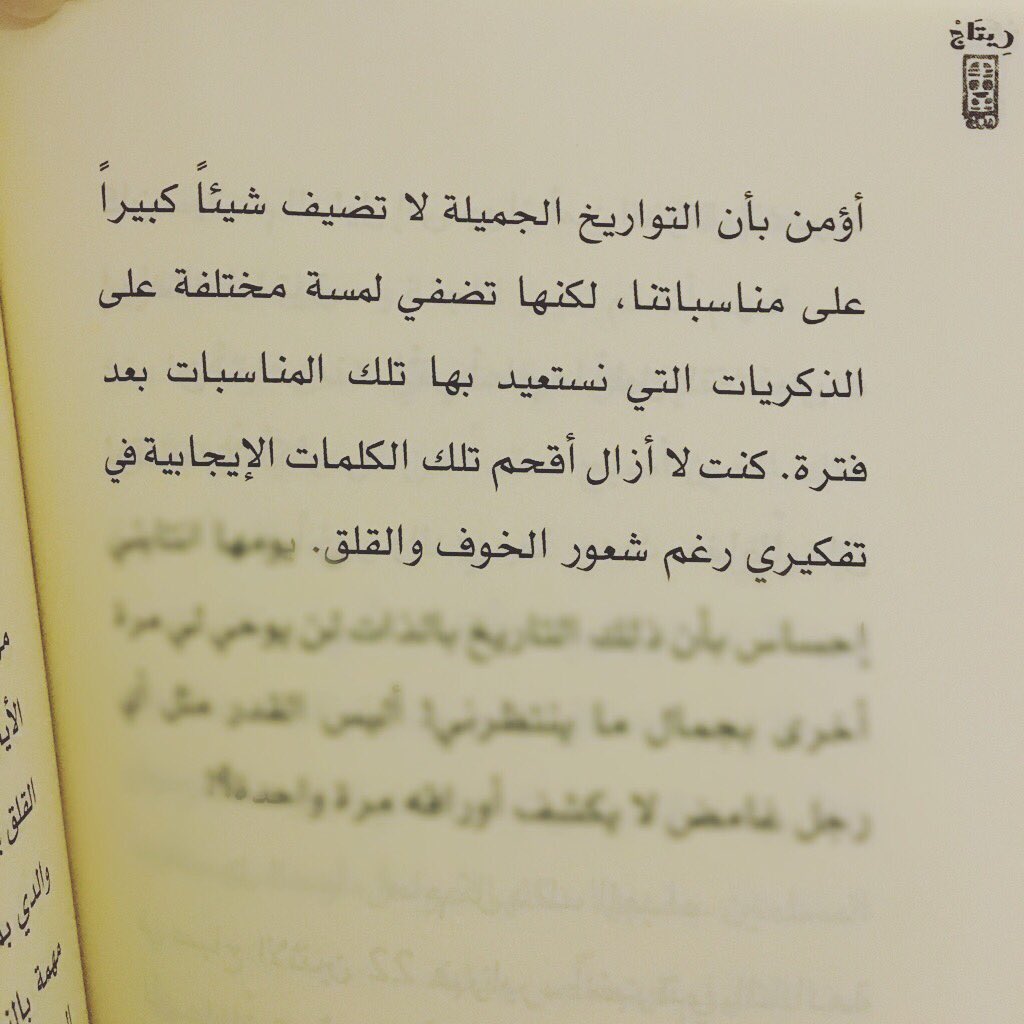 ريتاج
أؤمن بأن التواريخ الجميلة لا تضيف شيئاً كبيراً
على مناسباتنا، لكنها تضفي لمسة مختلفة على
الذكريات التي نستعيد بها تلك المناسبات بعد
فترة. كنت لا أزال أقحم تلك الكلمات الإيجابية في
تفكيري رغم شعور الخوف والقلق. يومها انتابني
إحساس بأن ذلك التاريخ بالذات لن يوحي لي مرة
أخرى بجمال ما ينتظرني! أليس القدر مثل أي
رجل غامض لا يكشف أوراقه مرة واحدة؟!
القلق
والدي
مهمة